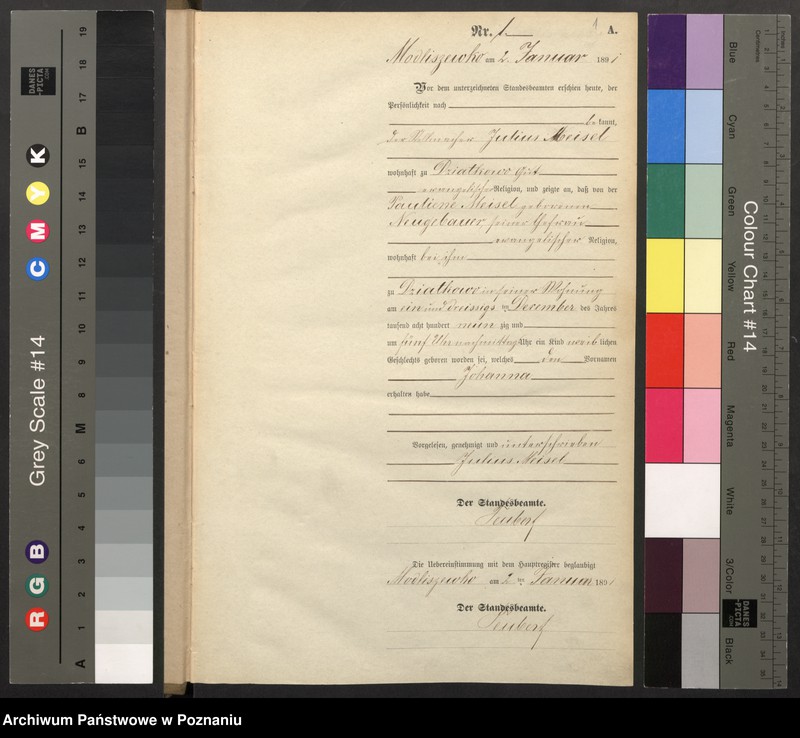 Nr. 1 1 A.
Modliszewko am 2. Januar 1891
Vor dem unterzeichneten Standesbeamten erschien heute, der
Persönlichkeit nach
be kannt,
der Julius Meisel
wohnhaft zu Dziatkowo Gut
evangelischer Religion, und zeigte an, daß von der
Pauline Meisel geborenen
Neugebauer, seiner Ehefrau
evangelischer Religion,
wohnhaft bei ihm
zu Dziatkowo in seiner Wohnung
am ein und dreissigs ten December des Jahres
tausend acht hundert neun zig und
um fünf Uhr nachmittags Uhr ein Kind weib lichen
Geschlechts geboren worden sei, welches den Vornamen
Johanna
erhalten habe
Vorgelesen, genehmigt und unterschrieben
Julius Meisel
Der Standesbeamte.
Die Uebereinstimmung mit dem Hauptregister beglaubigt
Modliszewko am 2 ten Januar 1891
Der Standesbeamte.
Grey Scale #14
R G B C M Y K
A 1 2 3 4 5 6 M 8 9 10 11 12 13 14 15 B 17 18 19
DANES
-PICTA
.COM
Colour Chart #14
Blue
Cyan
Green
Yellow
Red
Magenta
White
3/Color
Black
Centimetres
Inches
DANES
-PICTA
.COM
Archiwum Państwowe w Poznaniu